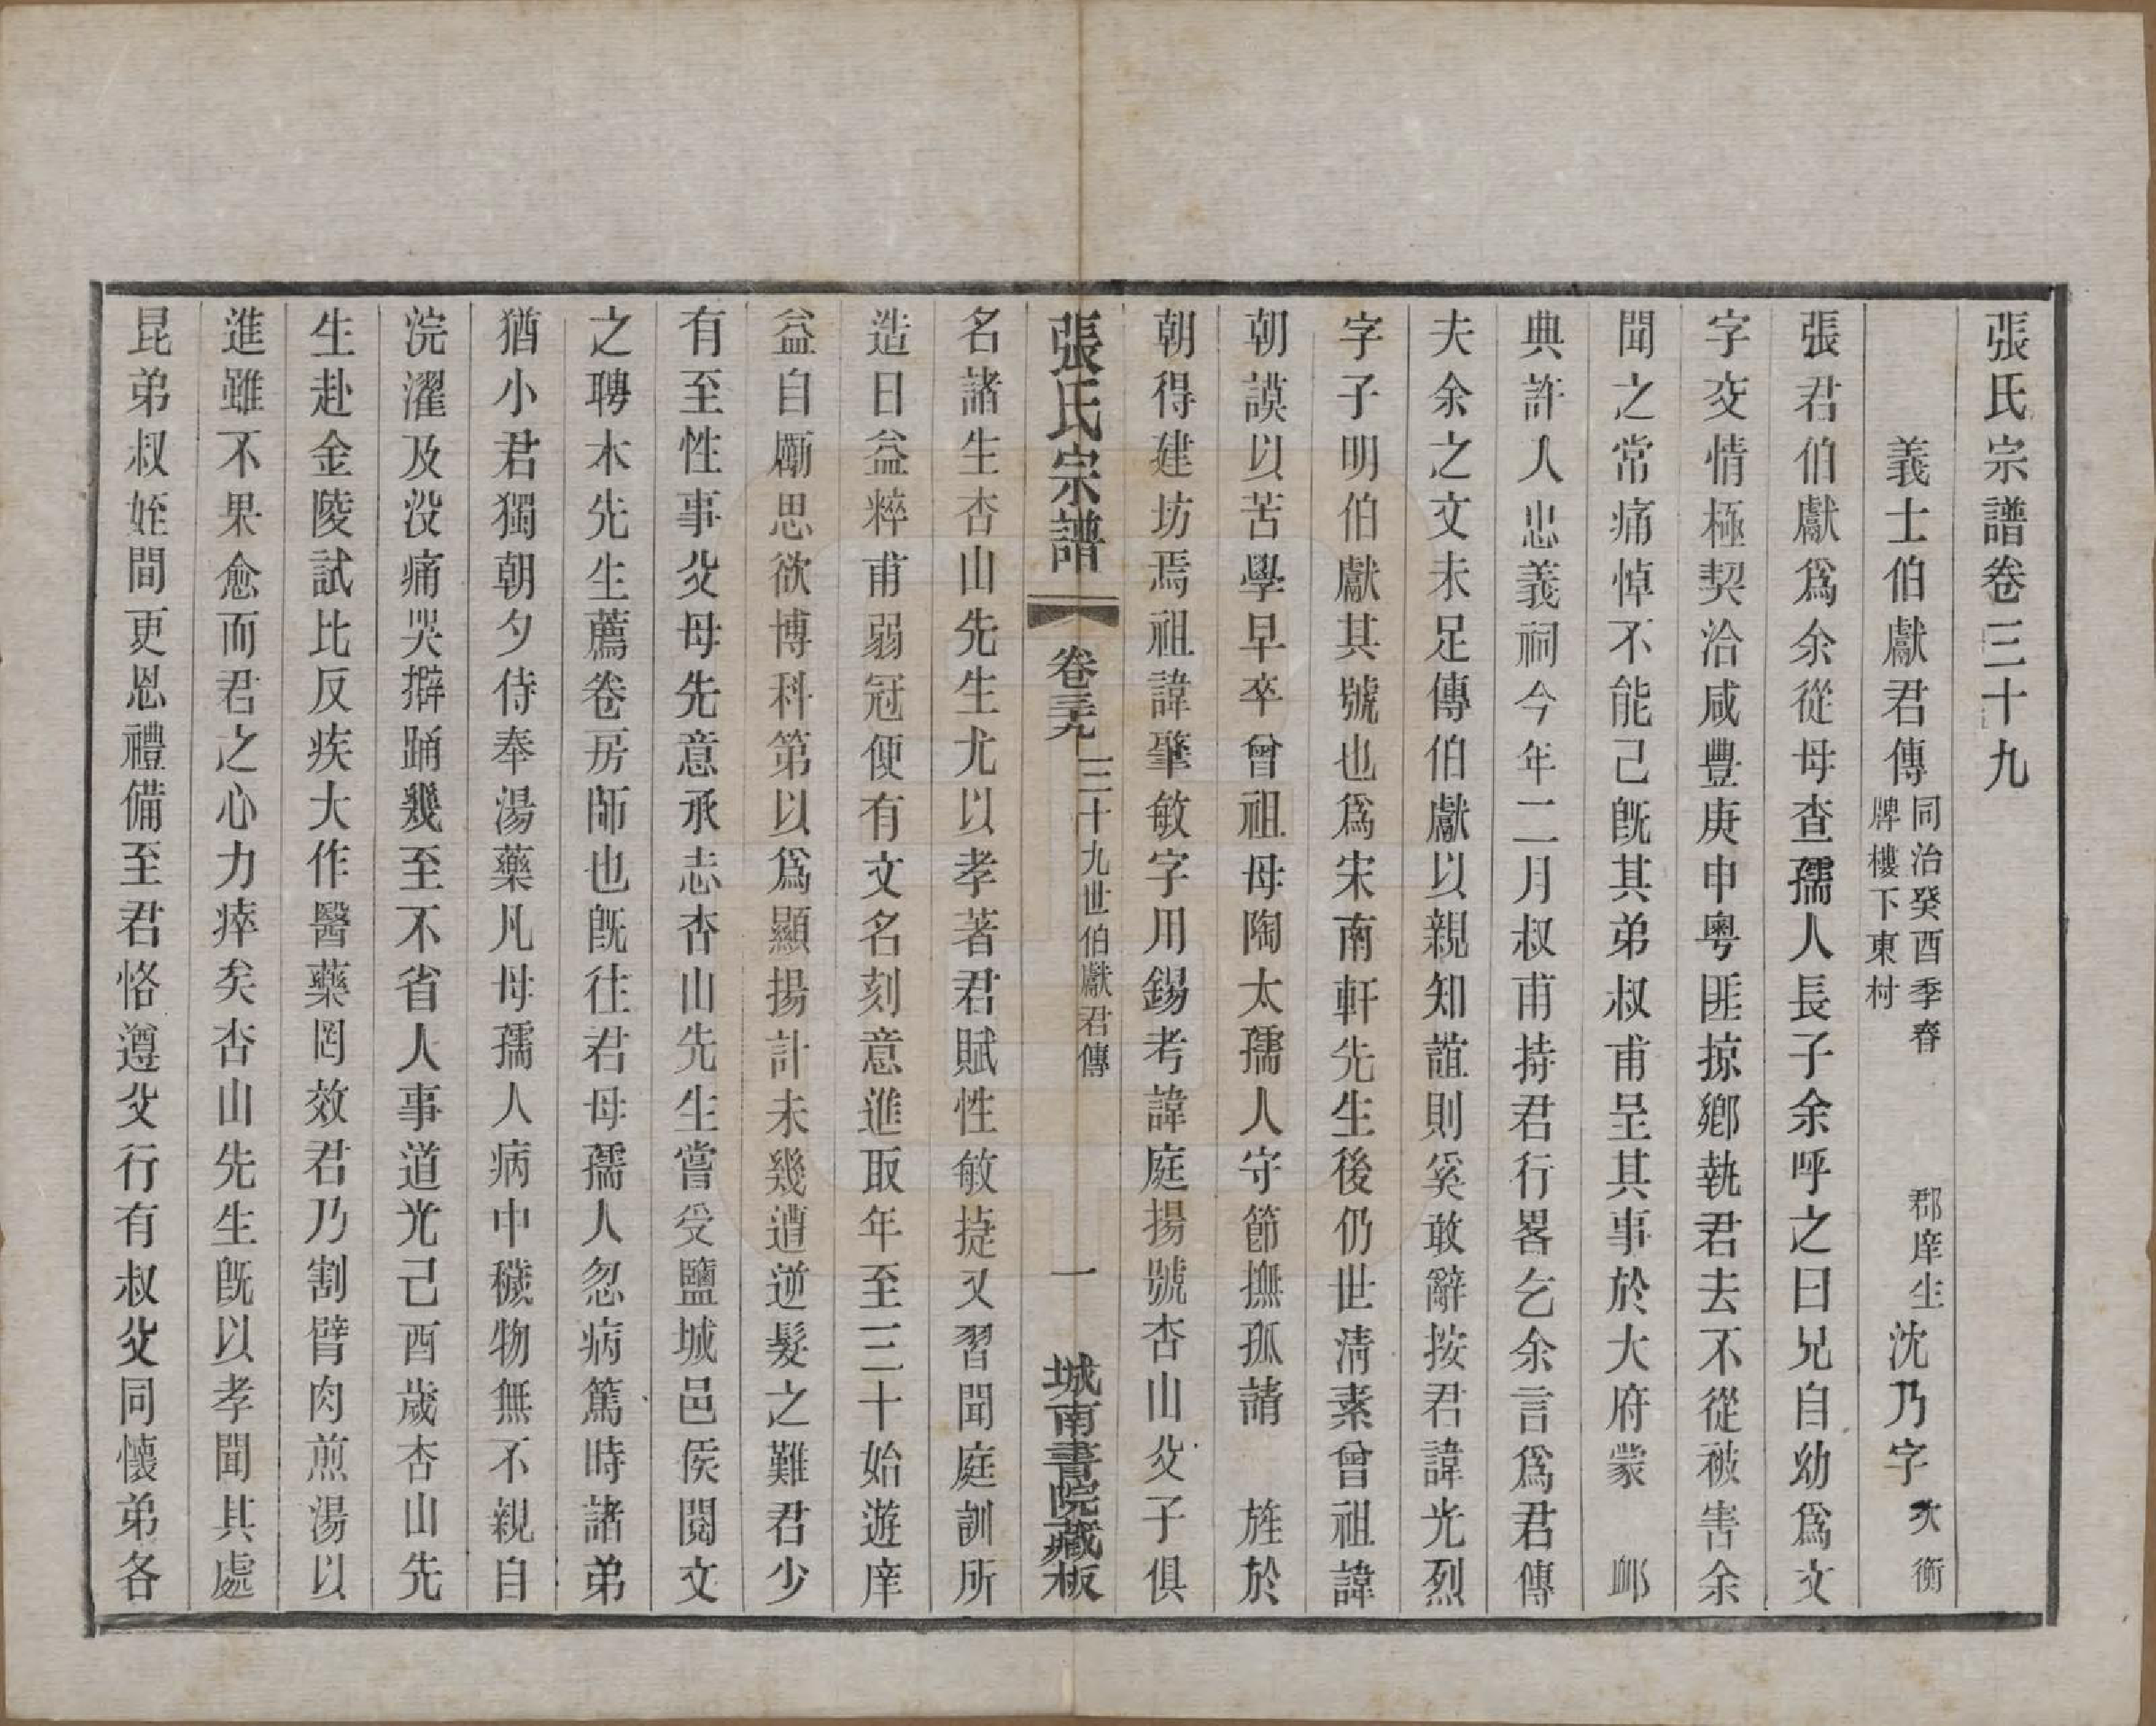 張氏宗譜卷三十九
義士伯獻君傳 同治癸酉季春 郡庠生 沈乃字 次衡
牌樓下東村
張君伯獻爲余從母查孺人長子余呼之曰兄自幼爲文
字交情極契洽咸豐庚申粤匪掠鄉執君去不從被害余
聞之常痛悼不能己旣其弟叔甫呈其事於大府蒙 䘏
典許入忠義祠今年二月叔甫持君行畧乞余言爲君傳
夫余之文未足傳伯獻以親知誼則奚敢辭按君諱光烈
字子明伯獻其號也爲宋南軒先生後仍世淸素曾祖諱
朝謨以苦學早卒曾祖母陶太孺人守節撫孤請 旌於
朝得建坊焉祖諱肇敏字用錫考諱庭揚號杏山父子俱
張氏宗譜 卷三十九 三十九世伯獻君傳 一 城南書院藏板
名諸生杏山先生尤以孝著君賦性敏捷又習聞庭訓所
造日益粹甫弱冠便有文名刻意進取年至三十始遊庠
益自勵思欲博科第以爲顯揚計未幾遭逆髮之難君少
有至性事父母先意承志杏山先生嘗受鹽城邑侯閱文
之聘木先生薦卷房師也旣往君母孺人忽病篤時諸弟
猶小君獨朝夕侍奉湯藥凡母孺人病中穢物無不親自
浣濯及沒痛哭擗踊幾至不省人事道光己酉歲杏山先
生赴金陵試比反疾大作醫藥罔效君乃割臂肉煎湯以
進雖不果愈而君之心力瘁矣杏山先生旣以孝聞其處
昆弟叔姪間更恩禮備至君恪遵父行有叔父同懷弟各